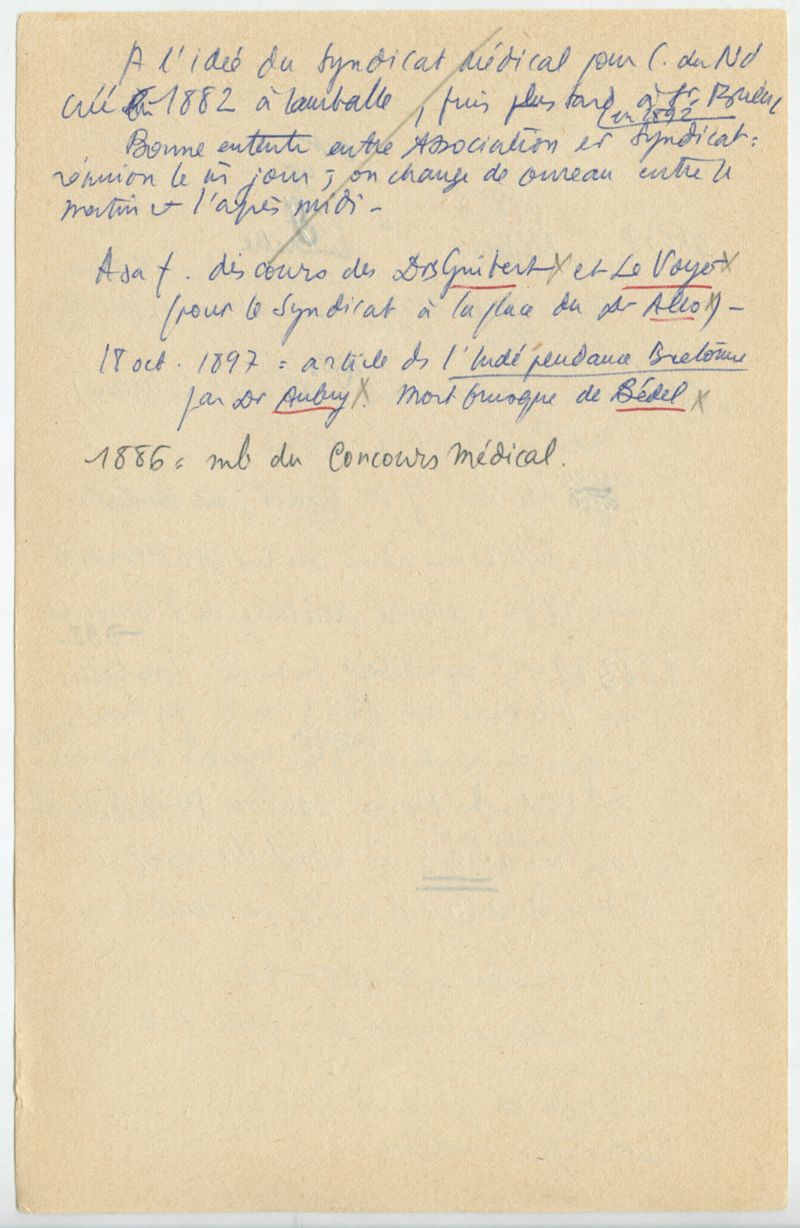 A l'idée du Syndicat Médical pour C. du Nd
créé en 1882 à Lamballe, puis plus tard à St. Brieuc
(en 1892
Bonne entente entre Association et Syndicat =
réunion le m jour ; on change de bureau entre le
matin et l'après midi -
A sa †. discours des Drs Guibert X et Le Voyer X
(pour le Syndicat à la place du Dr Allo X) -
18 oct. 1897 = article ds l'Indépendance Bretonne
par Dr Aubry X. Mort brusque de Bédel X
1886 = mb du Concours Médical.